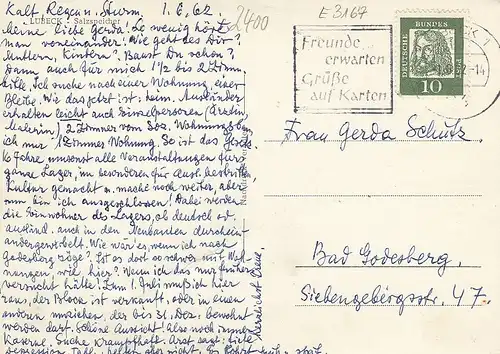 Kalt, Regen u. Sturm. 1. 6. 62
LÜBECK · Salzspeicher
Meine liebe Gerda! So wenig hört
man voneinander! Wie geht es Dir?
Muttern, Kindern? Baust Du schon?
Dann auch für mich 1½ bis 2 Zimm.
bitte. Ich suche nach einer Wohnung, einer
Bleibe. Wie das jetzt ist: beim Ausländer
erhalten leicht auch Einzelpersonen (Ärztin,
Malerin) 2 Zimmer vom Soz. Wohnungsbau
ich nur 1 Zimmer Wohnung. So ist das Gesetz.
16 Jahre umsonst alle Veranstaltungen fürs
ganze Lager, im besonderen für Ausl. bestritten,
Kultur gemacht u. mache noch weiter, aber
nun bin ich ausgeschlossen! Dabei werden
die Einwohner des Lagers, ob deutsch od.
ausländ. auch in den Neubauten durchein
andergewürfelt. Wie wär es, wenn ich nach
Godesberg zöge? Ist es dort so schwer mit Woh-
nungen wie hier? Wenn ich das nur früher
versucht hätte! Zum 1. Juli muß ich hier
raus, der Block ist verkauft, oder in einen
anderen umziehen, der bis 31. Dez. bewohnt
werden darf. Schöne Aussicht! Also noch immer
Kaserne. Suche krampfhaft. Arzt sagt: tiefe
Depression.
Herzlichst Deine
2400
E 3167
Freunde
erwarten
Grüße
auf Karten
DEUTSCHE BUNDESPOST
10
K 1
-14
Frau Gerda Schütz
Bad Godesberg,
Siebengebirgsstr. 47.